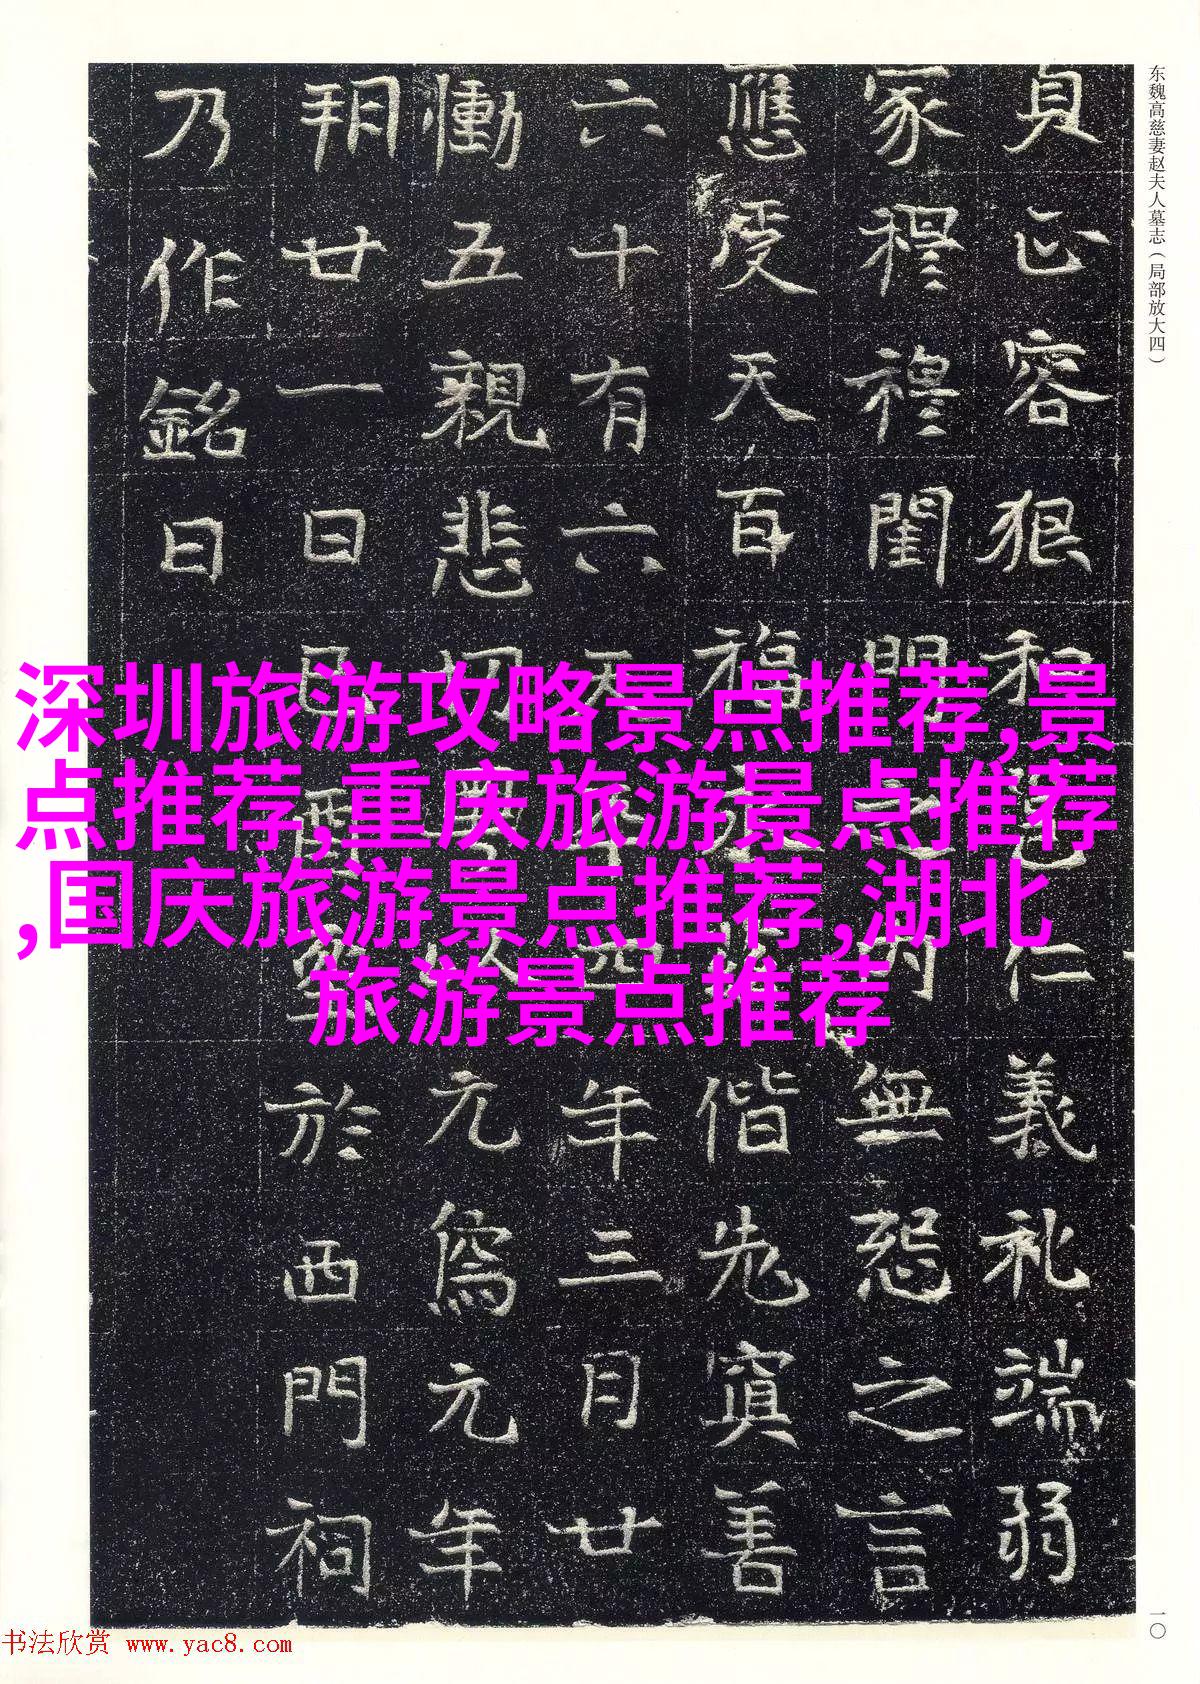 东魏高慈妻赵夫人墓志（局部放大四）
貞正容狠和邕仁義礼端弱
家穆穆閨門之内無怨之言
應受天百福永偕老寘善
六十有六天平四年三月廿
慟五親悲切以元象元年
朔廿一日己酉塟於西門祠
乃作銘曰
深圳旅游攻略景点推荐,景
点推荐,重庆旅游景点推荐
,国庆旅游景点推荐,湖北
旅游景点推荐
一〇
书法欣赏 www.yac8.com